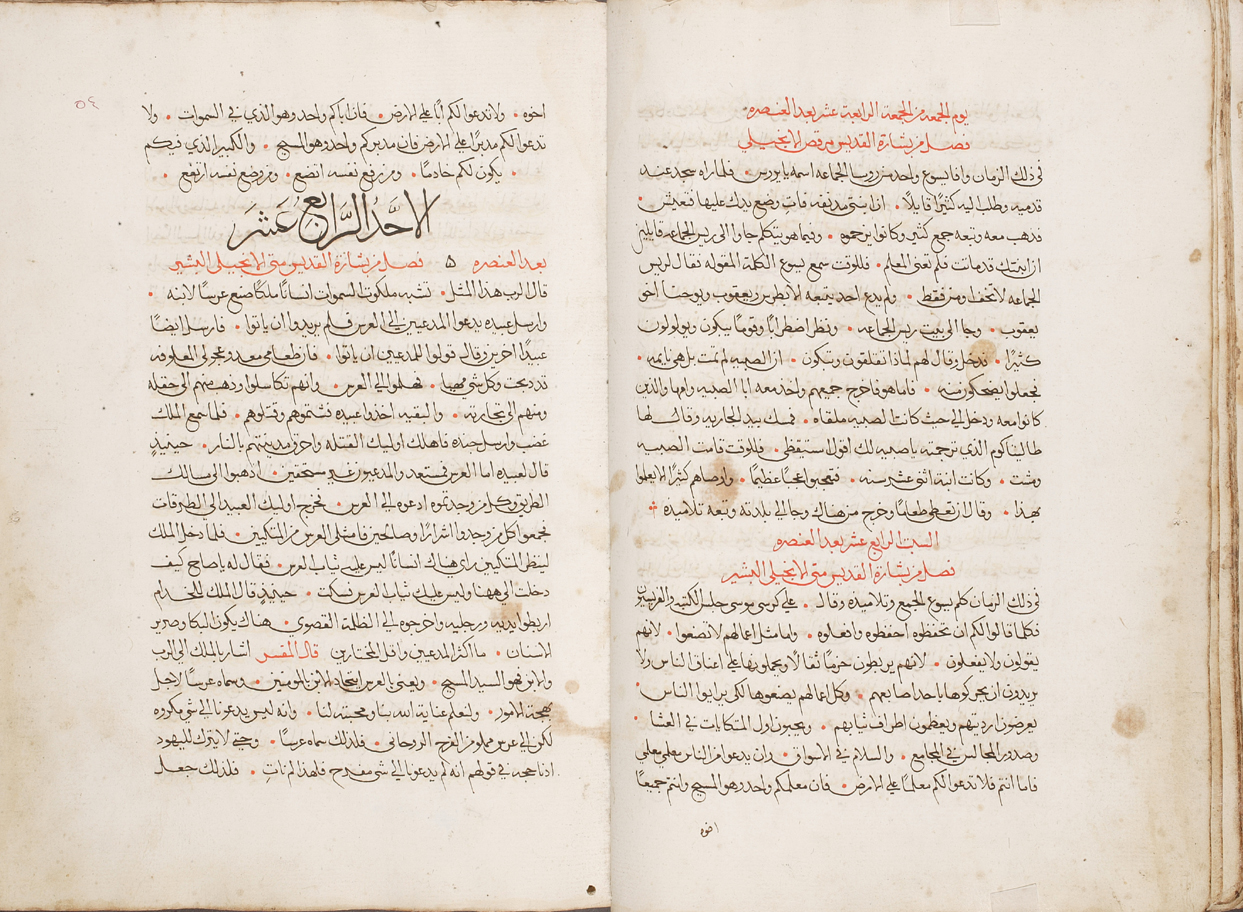 يوم الجمعه من الجمعة الرابعة عشر بعد العنصره
فصل من بشارة القديس مرقص الانجيلي
في ذلك الزمان وافا يسوع واحد من روسا الجماعه اسمه يابورس فلما راه سجد عند
قدميه وطلب اليه كثيرًا قايلاً ان ابنتي مدنفه فات وضع يدك عليها فتعيش
فذهب معه وتبعه جمع كثير وكانوا يزحموه وفيما هو يتكلم جاوا الى ريس الجماعه قايلين
ان ابنتك قد ماتت فلم تعنى المعلم فللوقت سمع يسوع الكلمة المقوله فقال لريس
الجماعه لا تخف اومن فقط ولم يدع احد يتبعه الا بطرس ويعقوب ويوحنا اخو
يعقوب وجا الى بيت ريس الجماعه ونظر اضطرابًا وقومًا يبكون ويولولون
كثيرًا فدخل وقال لهم لماذا تقلقون وتبكون ان الصبيه لم تمت بل هي نايمه
فجعلوا يضحكون منه فاما هو فاخرج جميعهم واخذ معه ابا الصبيه وامها والذين
كانوا معه ودخل الى حيث كانت الصبيه ملقاه فمسك بيد الجاريه وقال لها
طاليثا كوم الذي ترجمته يا صبيه لك اقول استيقظي فللوقت قامت الصبيه
ومشت وكانت ابنة اثنى عشر سنه فتعجبوا عجبًا عظيمًا واوصاهم كثيرًا الا يعلموا
بهذا وقال ان تعطى طعامًا وخرج من هناك وجا الى بلدته وتبعه تلاميذه
السبت الرابع عشر بعد العنصره
فصل من بشارة القديس متى الانجيلي البشير
في ذلك الزمان كلم يسوع الجمع وتلاميذه وقال على كرسي موسى جلس الكتبه والفريسين
فكلما قالوا لكم ان تحفظوه احفظوه وافعلوه واما مثل اعمالهم لا تصنعوا لانهم
يقولون ولا يفعلون لانهم يربطون حزمًا ثقالاً ويحملونها على اعناق الناس ولا
يريدون ان يحركوها باحد اصابعهم وكل اعمالهم يصنعوها لكي يرايوا الناس
يعرضون ارديتهم ويعظمون اطراف ثيابهم ويحبون اول المتكايات في العشا
وصدور المجالس في المجامع والسلام في الاسواق وان يدعوا من الناس معلمي معلمي
فاما انتم فلا تدعوا لكم معلمًا على الارض فان معلمكم واحد وهو المسيح وانتم جميعًا
اخوه
٥٤
اخوه ولا تدعوا لكم ابًا على الارض فان اباكم واحد وهو الذي في السموات ولا
تدعوا لكم مدبرًا على الارض فان مدبركم واحد وهو المسيح والكبير الذي فيكم
يكون لكم خادمًا ومن رفع نفسه اتضع ومن وضع نفسه ارتفع
الاحد الرابع عشر
بعد العنصره فصل من بشارة القديس متى الانجيلي البشير
قال الرب هذا المثل تشبه ملكوت السموات انسانًا ملكًا صنع عرسًا لابنه
وارسل عبيده يدعوا المدعيين الى العرس فلم يريدوا ان ياتوا فارسل ايضًا
عبيدًا اخرين وقال قولوا للمدعيين ان ياتوا فان طعامي معد وعجولي المعلوفه
قد ذبحت وكل شي مهيا فهلموا الى العرس وانهم تكاسلوا وذهب منهم الى حقله
ومنهم الى تجارته والبقيه اخذوا عبيده فشتموهم وقتلوهم فلما سمع الملك
غضب وارسل جنده فاهلك اوليك القتله واحرق مدينتهم بالنار حينيذٍ
قال لعبيده اما العرس فمستعد والمدعيون غير مستحقين اذهبوا الى مسالك
الطريق وكل من وجدتموه ادعوه الى العرس فخرج اوليك العبيد الى الطرقات
فجمعوا كل من وجدوا اشرارًا وصالحين فامتلى العرس من المتكيين فلما دخل الملك
لينظر المتكيين راى هناك انسانًا ليس عليه ثياب العرس فقال له يا صاح كيف
دخلت الى ههنا وليس عليك ثياب العرس فسكت حينيذٍ قال الملك للخدام
اربطوا يديه ورجليه واخرجوه الى الظلمة القصوى هناك يكون البكا وصرير
الاسنان ما اكثر المدعيين واقل المختارين قال المفسر اشار بالملك الى الرب
والابن فهو السيد المسيح ويعني بالعرس اتحاد الابن بالمومنين وسماه عرسًا لاجل
بهجة الامور ولنعلم عناية الله بنا ومحبته لنا وانه ليس يدعونا الى شي مكروه
لكن الى عرس مملو من الفرح الروحاني فلذلك سماه عرسًا وحتى لا يترك لليهود
اذنا حجه في قولهم انه لم يدعونا الى شي مفرح فلهذا لم نات فلذلك جعل